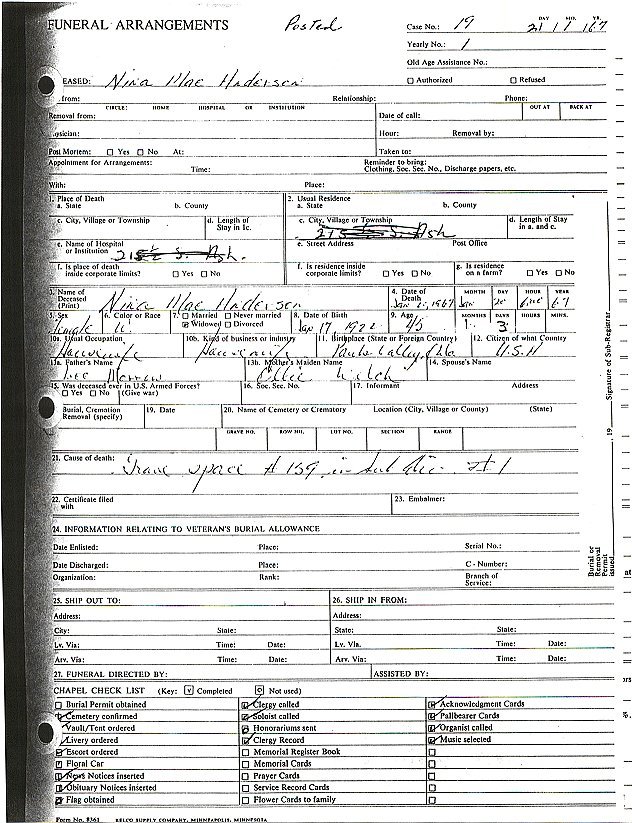 FUNERAL ARRANGEMENTS Posted Case No.: 19 DAY MO. YR.
21 1 67
Yearly No.: 1
Old Age Assistance No.:
EASED: Nina Mae Anderson ☐ Authorized ☐ Refused
from: Relationship: Phone:
CIRCLE: HOME HOSPITAL OR INSTITUTION OUT AT BACK AT
Removal from: Date of call:
ysician: Hour: Removal by:
Post Mortem: ☐ Yes ☐ No At: Taken to:
Appointment for Arrangements: Time: Reminder to bring:
Clothing, Soc. Sec. No., Discharge papers, etc.
With: Place:
1. Place of Death 2. Usual Residence
a. State b. County a. State b. County
c. City, Village or Township d. Length of Stay in 1c. c. City, Village or Township d. Length of Stay in a. and c.
S. Ash
e. Name of Hospital or Institution e. Street Address Post Office
S. Ash.
f. Is place of death inside corporate limits? ☐ Yes ☐ No f. Is residence inside corporate limits? ☐ Yes ☐ No g. Is residence on a farm? ☐ Yes ☐ No
3. Name of Deceased (Print) Nina Mae Anderson 4. Date of Death Jan 20, 1967 MONTH DAY HOUR YEAR
Jan 20 67
5. Sex 6. Color or Race 7. ☐ Married ☐ Never married 8. Date of Birth 9. Age MONTHS DAYS HOURS MINS.
Female W ☑ Widowed ☐ Divorced Jan 17, 1922 45 3
10a. Usual Occupation 10b. Kind of business or industry 11. Birthplace (State or Foreign Country) 12. Citizen of what Country
Housewife Housewife Pauls Valley, Okla U.S.A
13a. Father's Name 13b. Mother's Maiden Name 14. Spouse's Name
Lee Ollie
15. Was deceased ever in U.S. Armed Forces? 16. Soc. Sec. No. 17. Informant Address
☐ Yes ☐ No (Give war)
Burial, Cremation Removal (specify) 19. Date 20. Name of Cemetery or Crematory Location (City, Village or County) (State)
GRAVE NO. ROW NO. LOT NO. SECTION RANGE
21. Cause of death: Grave space # 139 in sub div. #1
22. Certificate filed with 23. Embalmer:
24. INFORMATION RELATING TO VETERAN'S BURIAL ALLOWANCE
Date Enlisted: Place: Serial No.:
Date Discharged: Place: C - Number:
Organization: Rank: Branch of Service:
25. SHIP OUT TO: 26. SHIP IN FROM:
Address: Address:
City: State: State: State:
Lv. Via: Time: Date: Lv. Via. Time: Date:
Arv. Via: Time: Date: Arv. Via: Time: Date:
27. FUNERAL DIRECTED BY: ASSISTED BY:
CHAPEL CHECK LIST (Key: ☑ Completed Not used)
☐ Burial Permit obtained ☑ Clergy called ☑ Acknowledgment Cards
☑ Cemetery confirmed ☑ Soloist called ☑ Pallbearer Cards
Vault/Tent ordered ☑ Honorariums sent ☑ Organist called
☑ Livery ordered ☑ Clergy Record ☑ Music selected
☑ Escort ordered ☐ Memorial Register Book ☐
☑ Floral Car ☐ Memorial Cards ☐
☑ News Notices inserted ☐ Prayer Cards ☐
☑ Obituary Notices inserted ☐ Service Record Cards ☐
☑ Flag obtained ☐ Flower Cards to family ☐
Form No. 8361 KELCO SUPPLY COMPANY, MINNEAPOLIS, MINNESOTA
Burial or Removal Permit issued , 19 Signature of Sub-Registrar